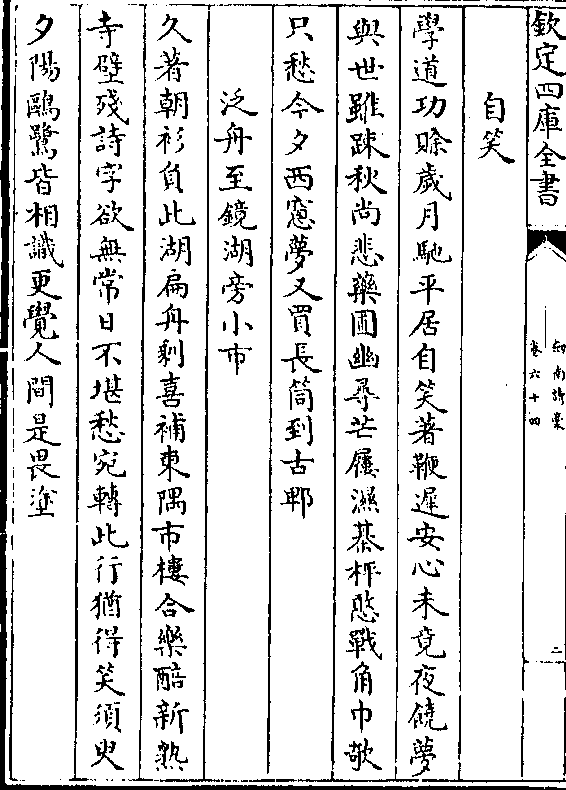 欽定四庫全書
劍南詩稾
卷六十四
二
自笑
學道功賒歲月馳平居自笑著鞭遲安心未竟夜饒夢
與世雖踈秋尚悲藥圃幽尋芒屨濕棊枰憨戰角巾欹
只愁今夕西窓夢又買長筒到古郫
泛舟至鏡湖旁小市
久著朝衫負此湖扁舟剰喜補東隅市樓合樂醅新熟
寺壁殘詩字欲無常日不堪愁宛轉此行猶得笑須臾
夕陽鷗鷺皆相識更覺人間是畏塗